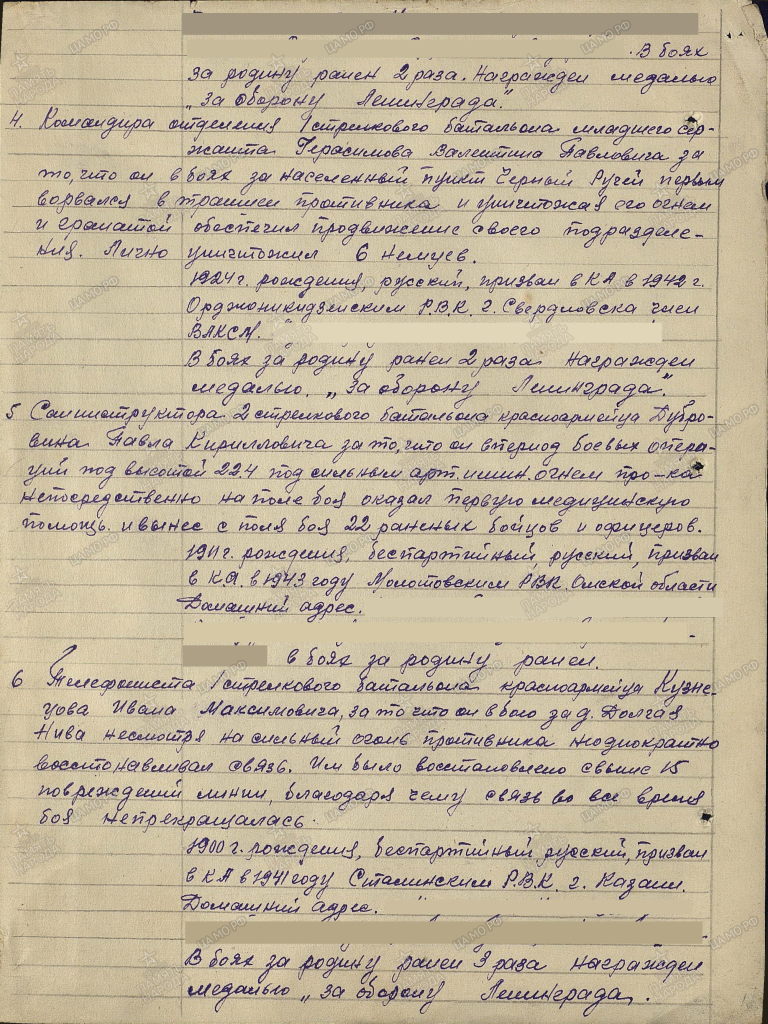 В боях
за родину ранен 2 раза. Награжден медалью
„за оборону Ленинграда."
4. Командира отделения 1 стрелкового батальона младшего сер-
жанта Герасимова Валентина Павловича за
то, что он в боях за населенный пункт Черный Ручей первым
ворвался в траншеи противника и уничтожая его огнем
и гранатой обеспечил продвижение своего подразделе-
ния. Лично уничтожил 6 немцев.
1924 г. рождения, русский, призван в КА в 1942 г.
Орджоникидзевским Р.В.К. г. Свердловска член
ВЛКСМ.
В боях за родину ранен 2 раза награжден
медалью „за оборону Ленинграда".
5 Санинструктора 2 стрелкового батальона красноармейца Дубро-
вина Павла Кирилловича за то, что он в период боевых опера-
ций под высотой 22.4 под сильным арт. и мин. огнем пр-ка
непосредственно на поле боя оказал первую медицинскую
помощь и вынес с поля боя 22 раненых бойцов и офицеров.
1911 г. рождения, беспартийный, русский, призван
в КА в 1943 году Молотовским РВК Омской области
Домашний адрес.
в боях за родину ранен.
6 Телефониста 1 стрелкового батальона красноармейца Кузне-
цова Ивана Максимовича, за то что он в бою за д. Долгая
Нива несмотря на сильный огонь противника неоднократно
восстонавливал связь. Им было восстановлено свыше 15
повреждений линии, благодаря чему связь во все время
боя непрекращалась.
1900 г. рождения, беспартийный русский, призван
в КА в 1941 году Сталинским Р.В.К. г. Казани.
Домашний адрес.
В боях за родину ранен 3 раза награжден
медалью „за оборону Ленинграда.